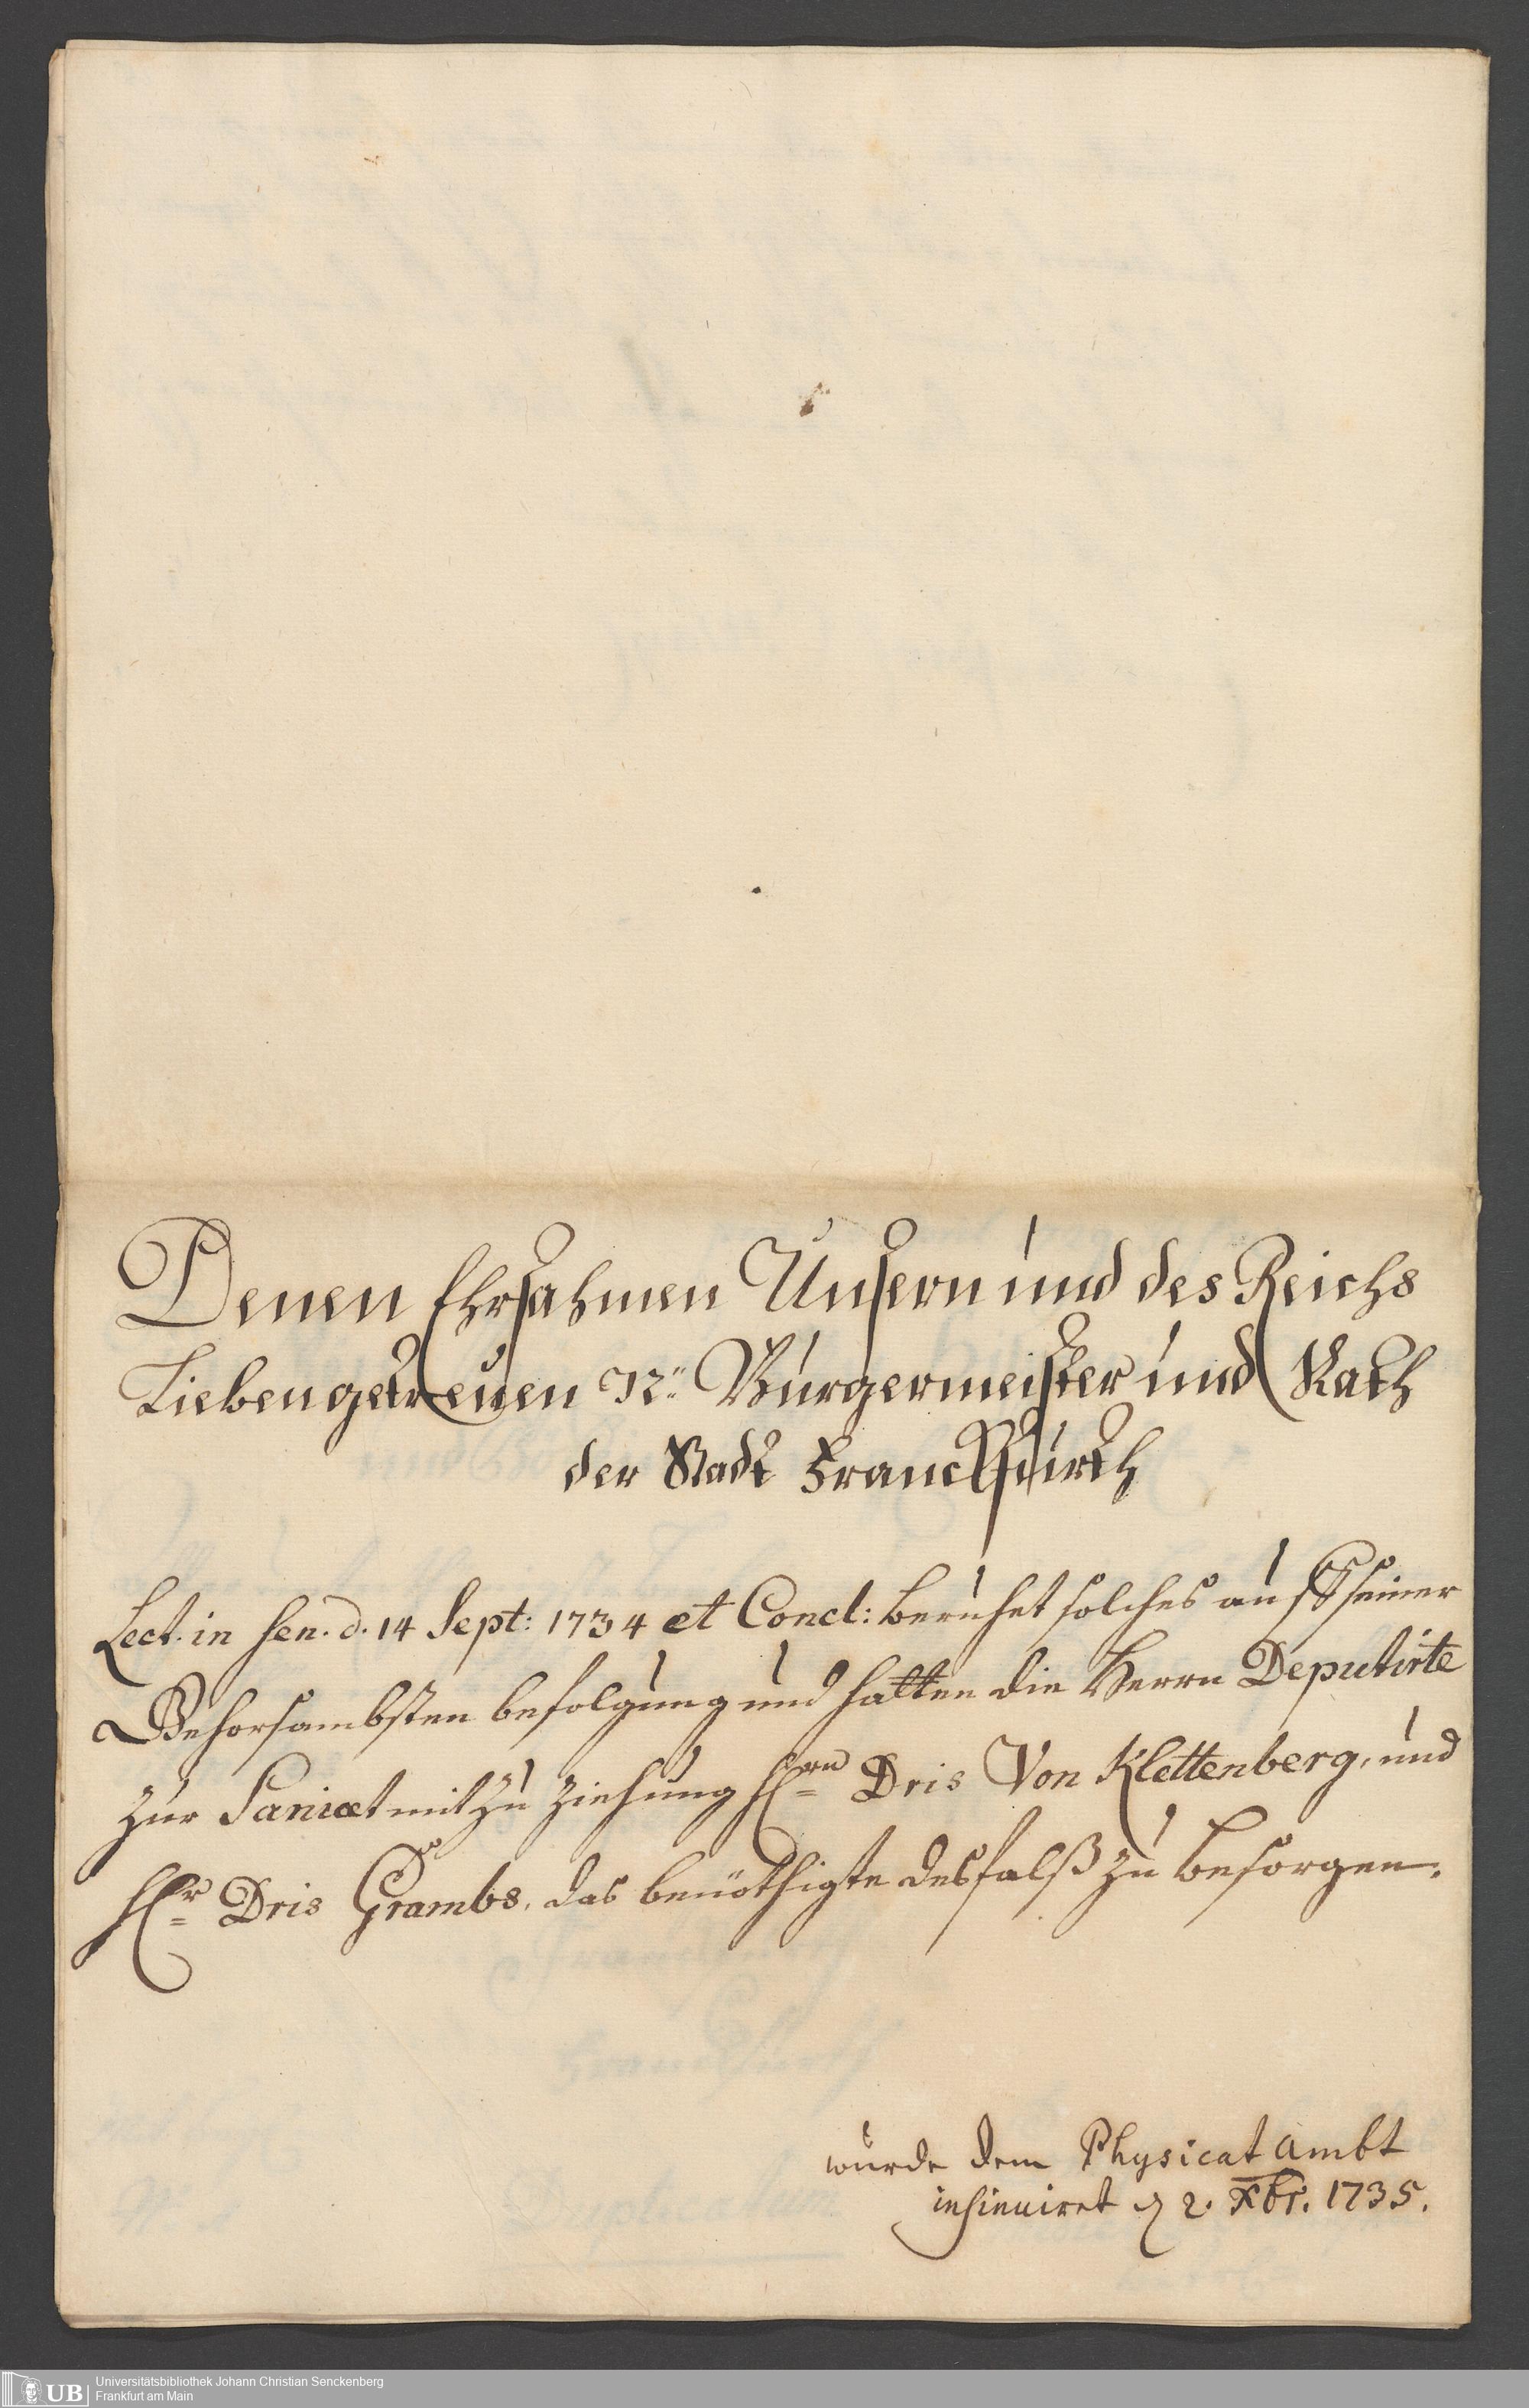 Denen Ehrsahmen Unsern und des Reichs
Lieben getreuen N: Burgermeister und Rath
der Stadt Franckfurth
Lect. in Sen. d. 14 Sept: 1734 et Concl: beruhet solches auff seiner
Gehorsambsten befolgung und hatten die Herrn Deputirte
zur Sanitæt mit zu ziehung H:rn Dris Von Klettenberg, und
H:r Dris Grambs, das benöthigte desfalß zu besorgen.
wurde dem Physicat Ambt
insinuiret d 2. Xbr. 1735.
UB
Universitätsbibliothek Johann Christian Senckenberg
Frankfurt am Main